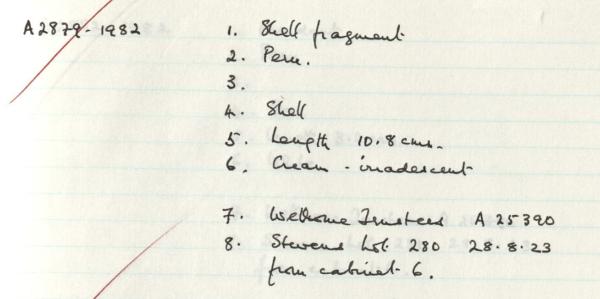 A2879-1982 1. Shell fragment
2. Peru.
3.
4. Shell
5. Length 10.8cms.
6. Cream - irradescent
7. Wellcome Trustees A 25390
8. Stevens Lot 280 28.8.23
from cabinet 6.